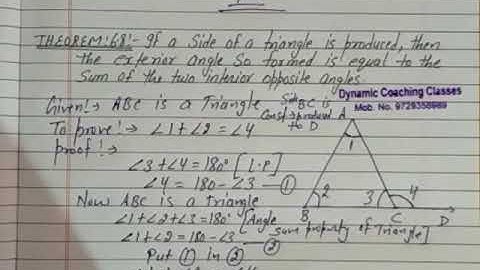 THEOREM:'6.8':- If a Side of a triangle is produced, then
the exterior angle So formed is equal to the
Sum of the two interior opposite angles.
Dynamic Coaching Classes
Mob. No. 9729356969
Given:→ ABC is a Triangle Side BC is
Const→ produced
to D
To prove:→ ∠1+∠2 = ∠4
proof:→
∠3+∠4=180° [L.P]
∠4 = 180-∠3 —①
Now ABC is a triangle
∠1+∠2+∠3=180° [Angle
sum property of Triangle]
∠1+∠2 = 180-∠3 —②
Put ① in ②
A
1
2
3
4
B
C
D